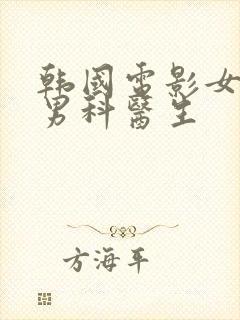 韩國雷影女
男科醫生
方海平